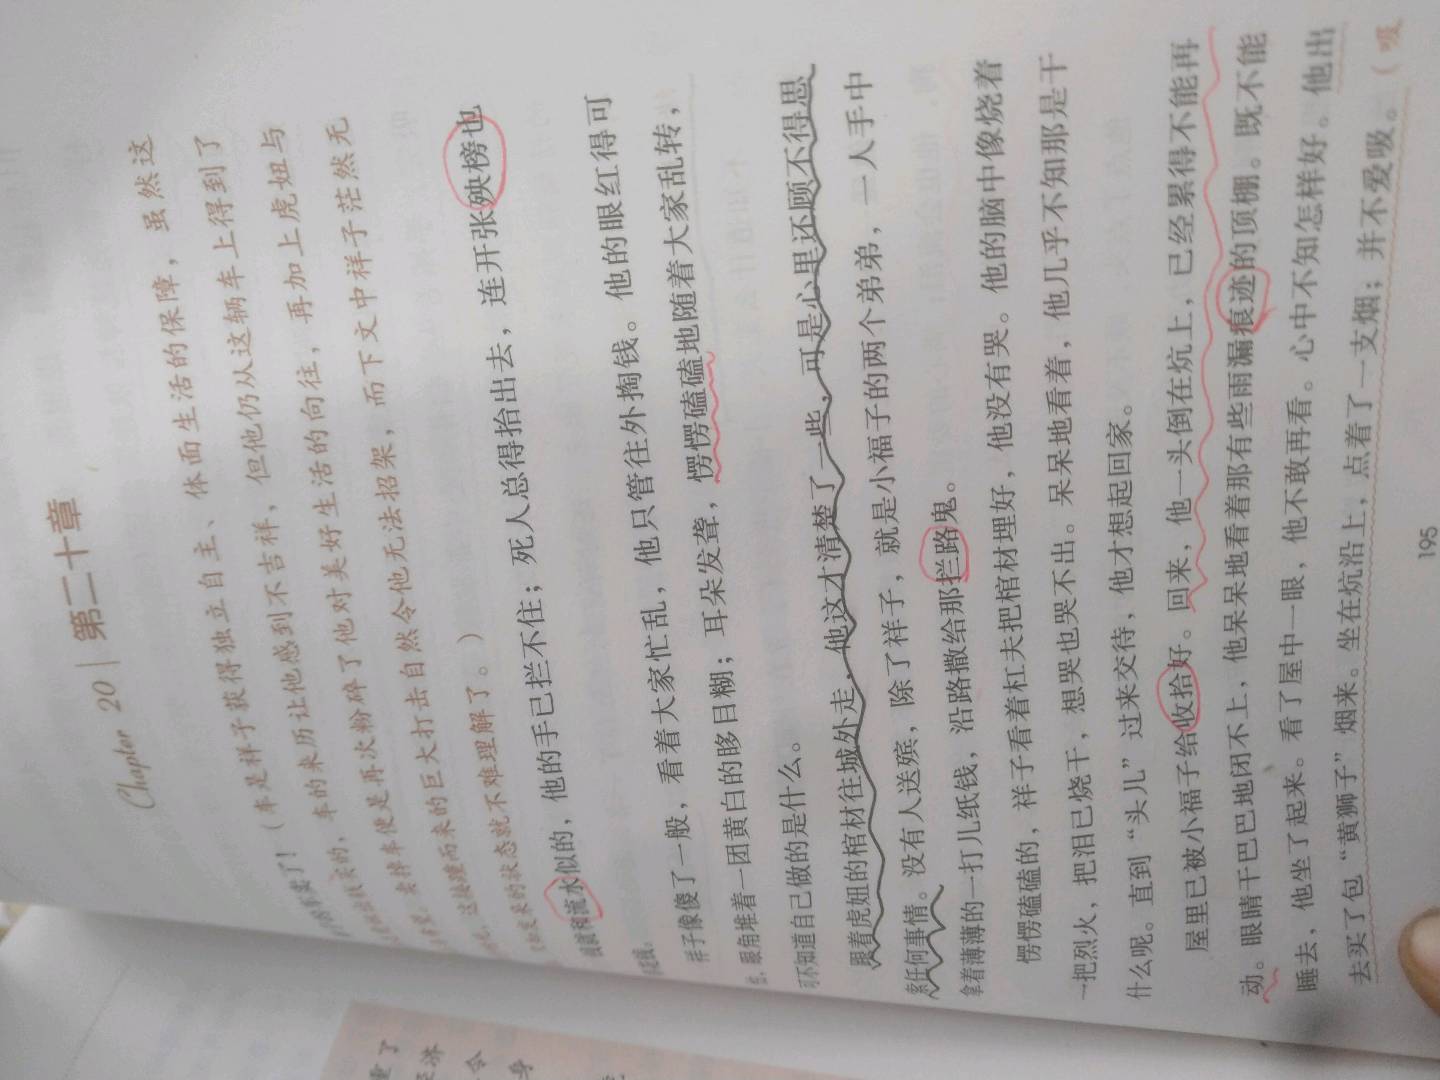 Chapter 20 | 第二十章
的车卖了！（车是祥子获得独立自主、体面生活的保障，虽然这
车的来历让他感到不吉祥，但他仍从这辆车上得到了
卖掉车便是再次粉碎了他对美好生活的向往，再加上虎妞与
而来的巨大打击自然令他无法招架，而下文中祥子茫然无
的状态就不难理解了。）
钱就和流水似的，他的手已拦不住；死人总得抬出去，连开张殃榜也
得花钱。
祥子像傻了一般，看着大家忙乱，他只管往外掏钱。他的眼红得可
怕，眼角堆着一团黄白的眵目糊；耳朵发聋，愣愣磕磕地随着大家乱转，
可不知道自己做的是什么。
跟着虎妞的棺材往城外走，他这才清楚了一些，可是心里还顾不得思
索任何事情。没有人送殡，除了祥子，就是小福子的两个弟弟，一人手中
拿着薄薄的一打儿纸钱，沿路撒给那拦路鬼。
愣愣磕磕的，祥子看着杠夫把棺材埋好，他没有哭。他的脑中像烧着
一把烈火，把泪已烧干，想哭也哭不出。呆呆地看着，他几乎不知那是干
什么呢。直到“头儿”过来交待，他才想起回家。
屋里已被小福子给收拾好。回来，他一头倒在炕上，已经累得不能再
动。眼睛干巴巴地闭不上，他呆呆地看着那有些雨漏痕迹的顶棚。既不能
睡去，他坐了起来。看了屋中一眼，他不敢再看。心中不知怎样好。他出
去买了包“黄狮子”烟来。坐在炕沿上，点着了一支烟；并不爱吸。（吸
195
了
济
令
身